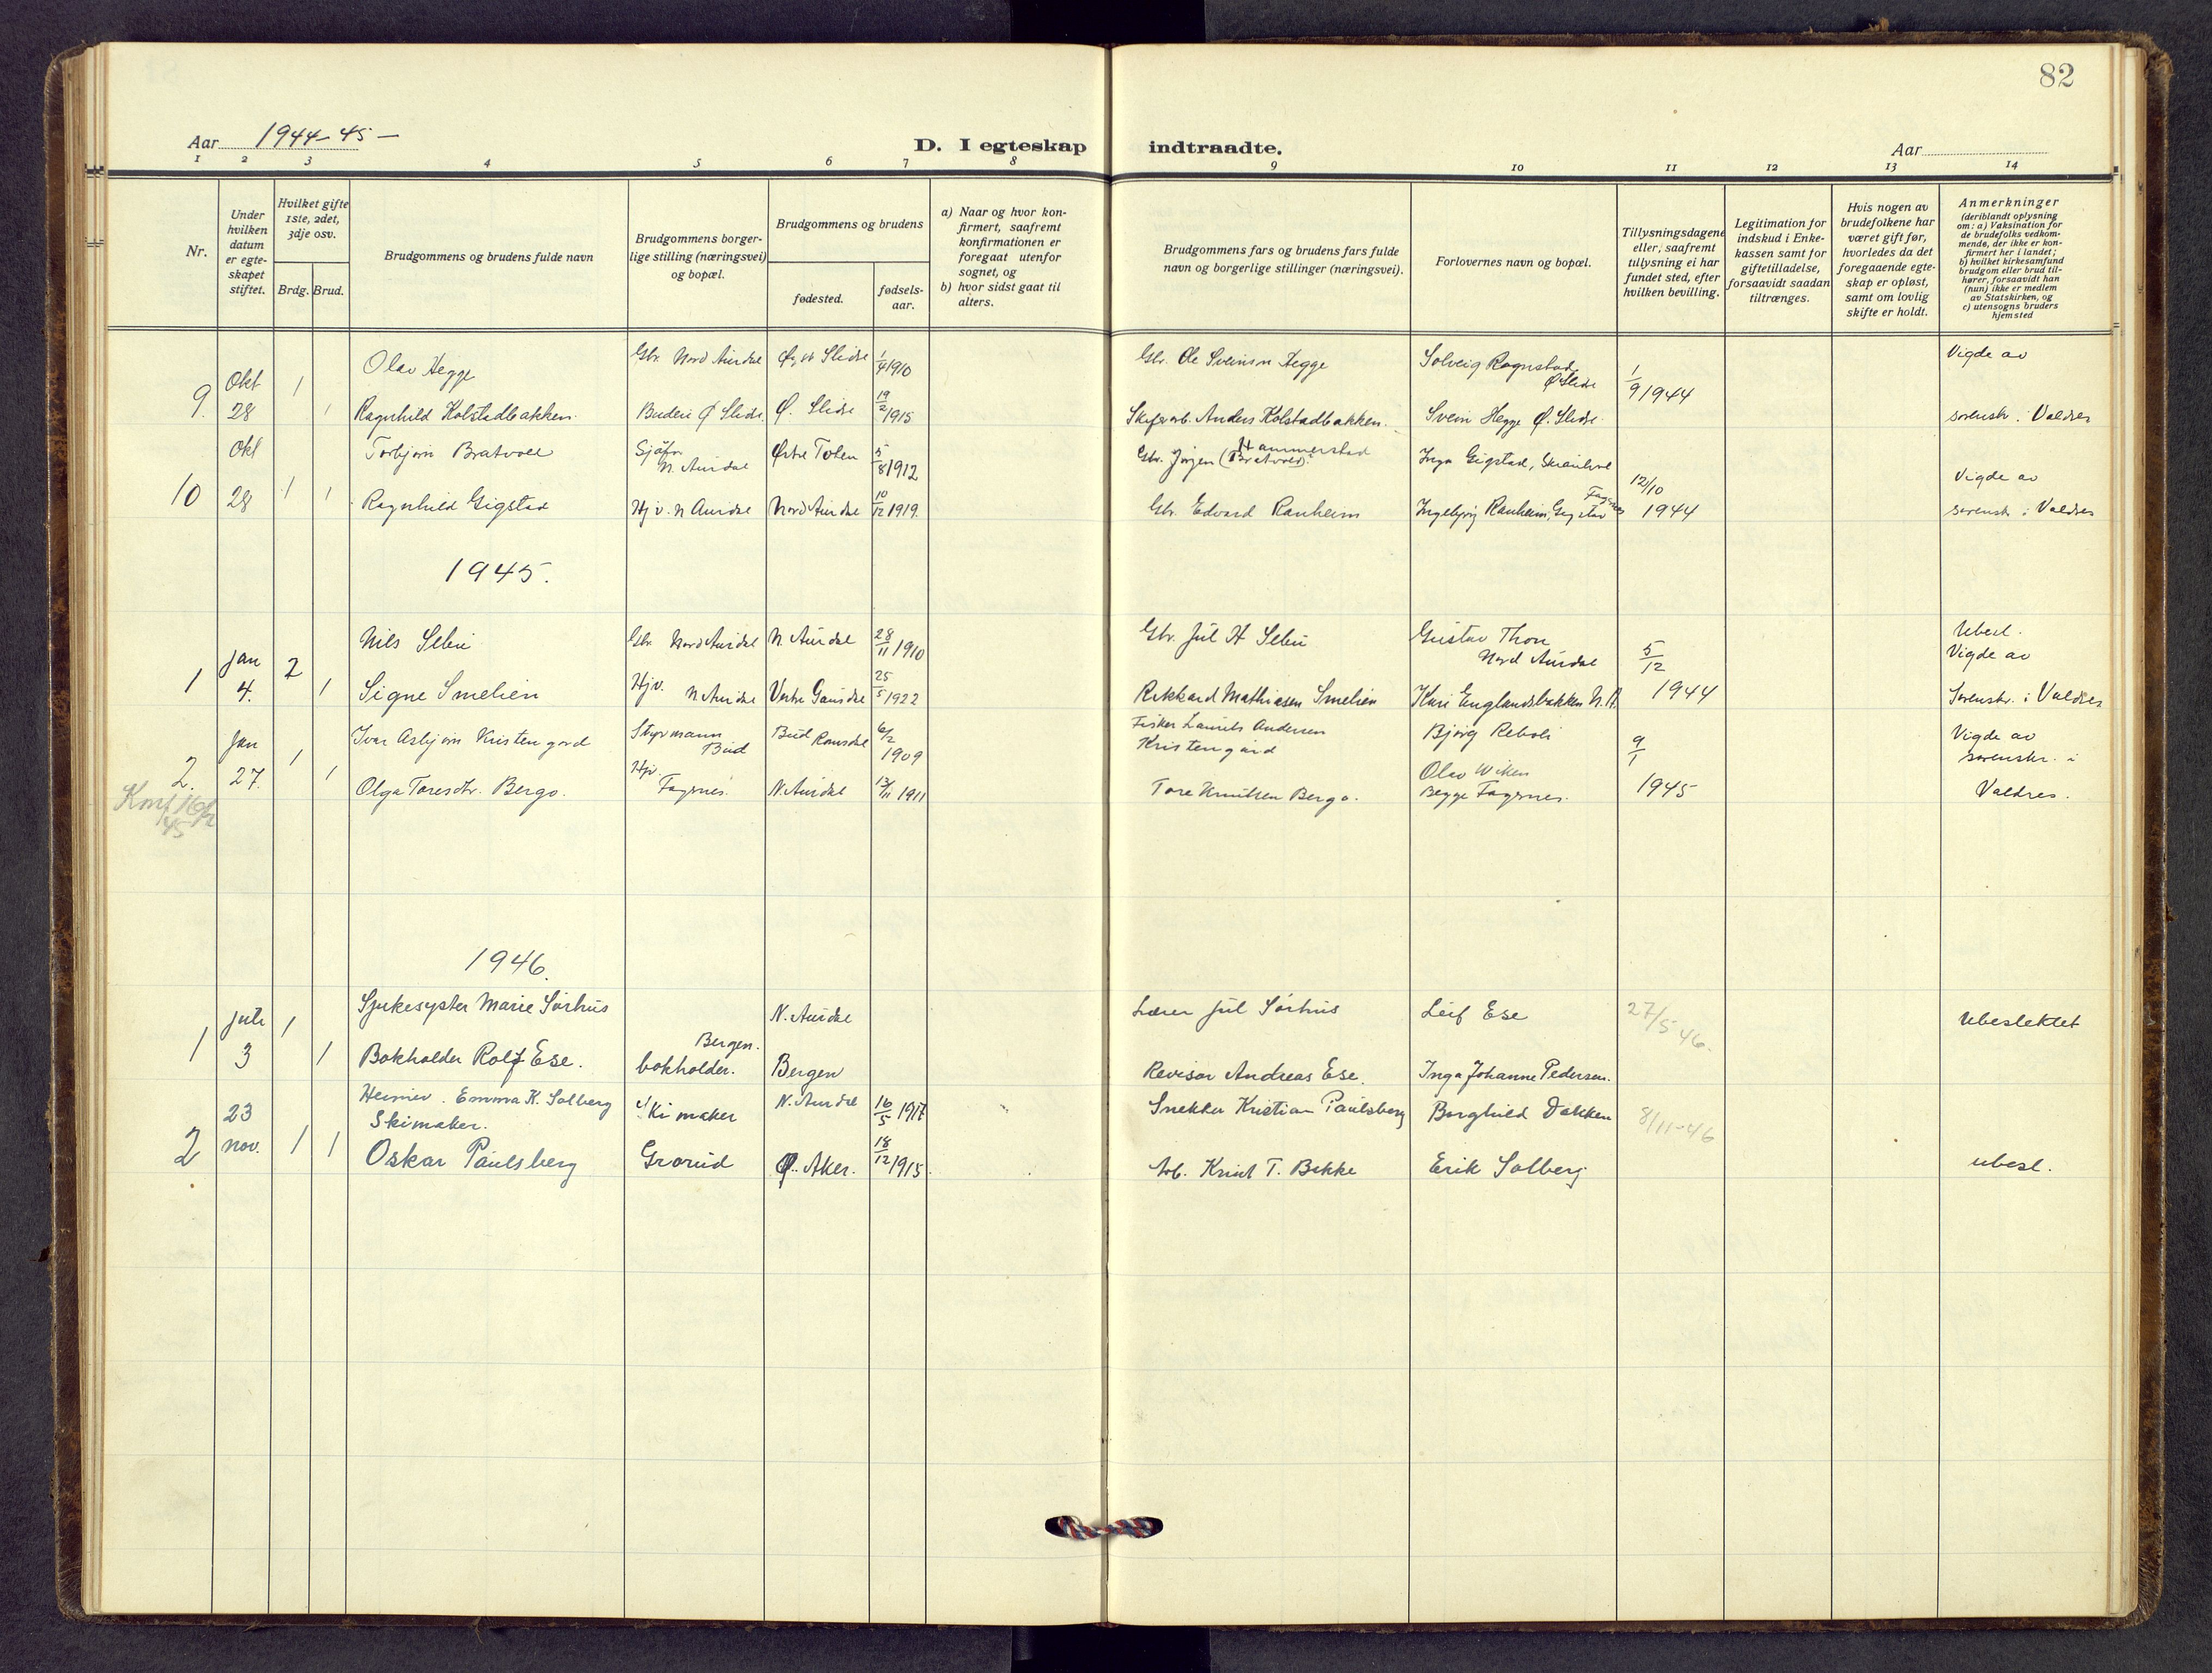 82
Aar 1944-45 —
D. I egteskap indtraadte.
Aar
1 2 3 4 5 6 7 8 9 10 11 12 13 14
Nr.
Under hvilken datum er egte-skapet stiftet.
Hvilket gifte 1ste, 2det, 3dje osv.
Brdg. Brud.
Brudgommens og brudens fulde navn
Brudgommens borger-lige stilling (næringsvei) og bopæl.
Brudgommens og brudens
fødested.
fødsels-aar.
a) Naar og hvor kon-firmert, saafremt konfirmationen er foregaat utenfor sognet, og
b) hvor sidst gaat til alters.
Brudgommens fars og brudens fars fulde navn og borgerlige stillinger (næringsvei).
Forlovernes navn og bopæl.
Tillysningsdagene eller, saafremt tillysning ei har fundet sted, efter hvilken bevilling.
Legitimation for indskud i Enke-kassen samt for giftetilladelse, forsaavidt saadan tiltrænges.
Hvis nogen av brudefolkene har været gift før, hvorledes da det foregaaende egte-skap er opløst, samt om lovlig skifte er holdt.
Anmerkninger (deriblandt oplysning om: a) Vaksination for de brudefolks vedkom-mende, der ikke er kon-firmert her i landet; b) hvilket kirkesamfund brudgom eller brud til-hører, forsaavidt han (hun) ikke er medlem av Statskirken, og c) utensogns bruders hjemsted
Olav Hegge Gbr. Nord Aurdal Slidre 1/4 1910 Gbr. Ole Hegge Solveig Rognstad Ø Slidre Vigde av
9. Okt 28 1 1 Ragnhild Kolstadbakken. Budeie Ø Slidre. Ø. Slidre 19/2 1915 Anders Kolstadbakken. Svein Hegge Ø. Slidre. 1/9 1944 sorenskr. i Valdres
Okt Torbjørn Bratvold N. Aurdal Østre Toten 5/8 1912 Gbr. Jørgen (Bratvold) Hammerstad Inga Gigstad, Vigde av
10 28 1 1 Ragnhild Gigstad Hj v. N Aurdal Nord Aurdal 10/12 1919. Gbr. Edvard Ranheim Ingebjørg Ranheim, Gigstad Fagernes 12/10 1944 sorenskr i Valdres
1945.
Nils Sebu Gbr. Nord Aurdal N. Aurdal 28/11 1910 Gbr. Jul H Sebu Gustav Thon Nord Aurdal 5/12 Ubesl. Vigde av
1 Jan 4. 2 1 Signe Smelien Hjv. N Aurdal Vestre Gausdal 25/5 1922 Rikkard Mathiasen Smelien Kari Englandsbakken N. A. 1944 Sorenskr. i Valdres
Jan 1 Ivar Asbjørn Kristengard Styrmann Bud Bud Romsdal 6/2 1909 Fisker Laurits Andersen Kristengård Bjørg Reboli 9/1 Vigde av sorenskr. i
2. 27. 1 Olga Toresdtr. Bergo. Hjv. Fagernes. N. Aurdal 13/11 1911 Tore Knutsen Bergo. Olav Wiken Begge Fagernes. 1945 Valdres.
45
1946.
Juli 1 Sjukesyster Marie Sørhus N. Aurdal Lærer Jul Sørhus Leif Ese 27/5 46. Ubeslektet
1 3 1 Bokholder Rolf Ese. Bergen. bokholder. Bergen Revisor Andreas Ese. Inga Johanne Pedersen.
23 Heimev. Emma K. Solberg Skimaker. Skimaker N. Aurdal 16/5 1917 Snekker Kristian Paulsberg Borghild Dokken 8/11-46
2 nov. 1 1 Oskar Paulsberg Grorud Ø. Aker. 18/12 1915. Arb. Knut T. Bakke Erik Solberg ubesl.